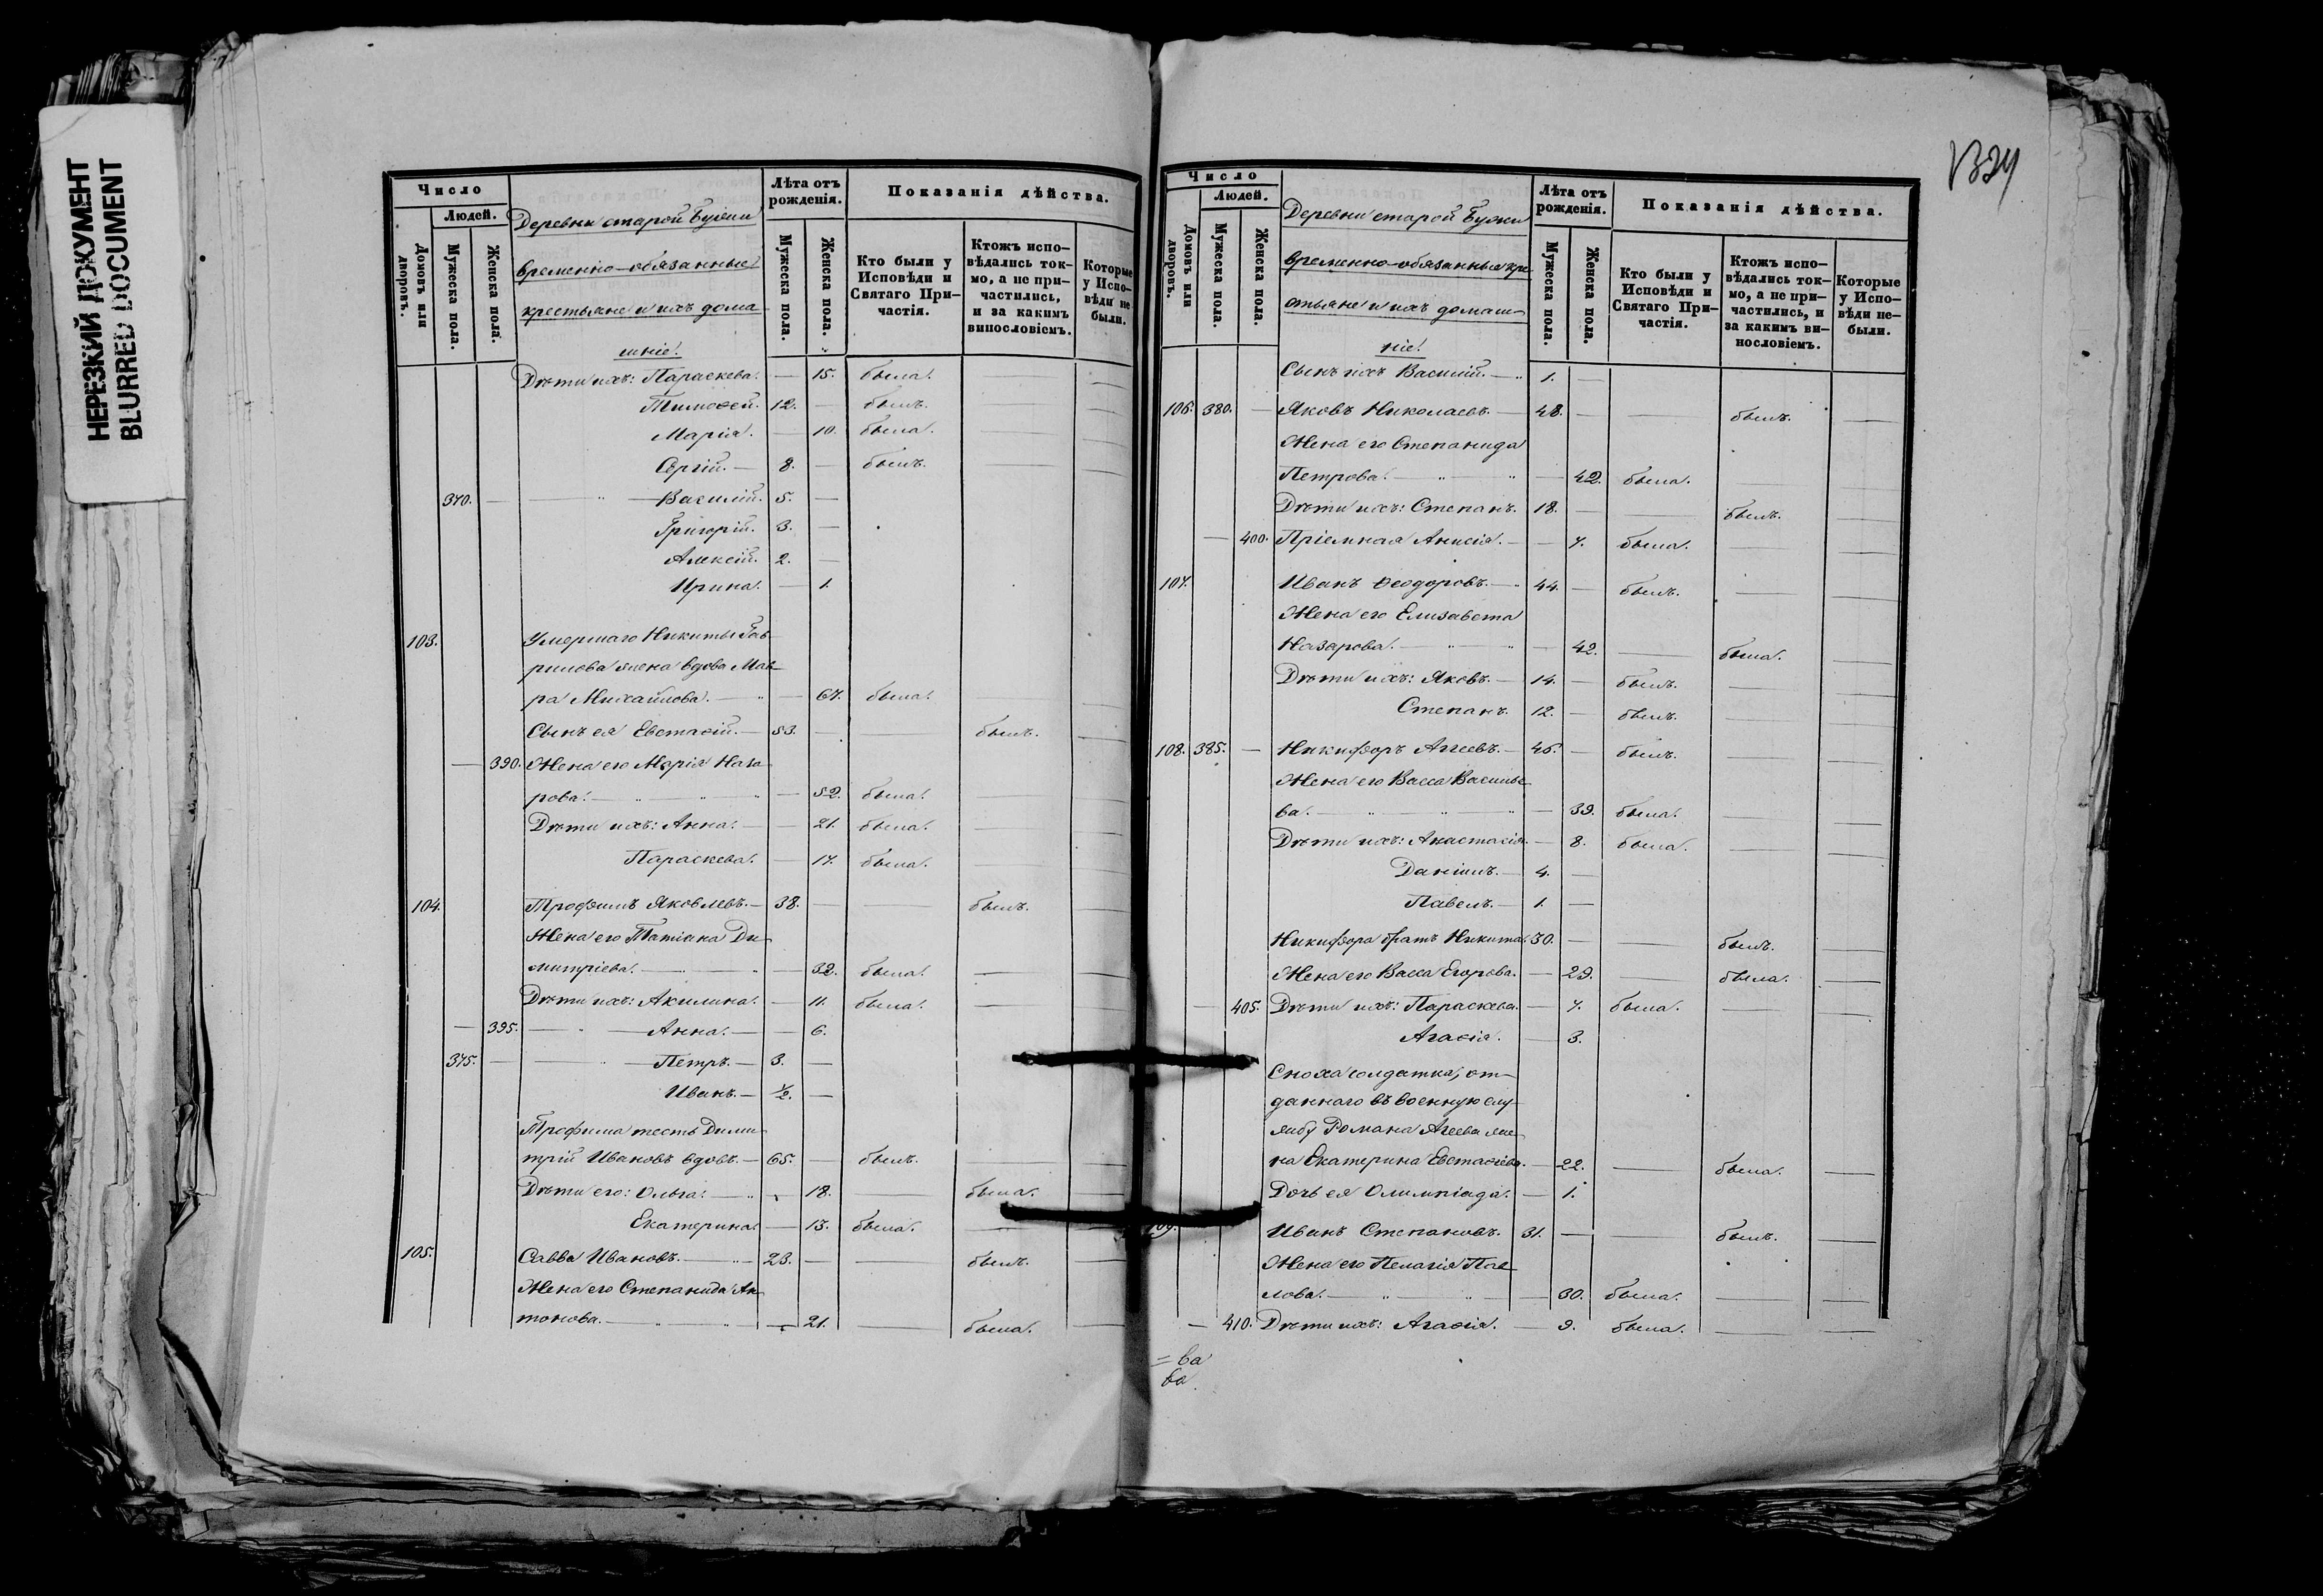 НЕРЕЗКИЙ ДОКУМЕНТ
BLURRED DOCUMENT
Число
Людей.
Домовъ или дворовъ.
Мужеска пола.
Женска пола.
Деревни старой Бузни
временно-обязанные
крестьяне и ихъ дома
шніе.
Лѣта отъ рожденія.
Мужеска пола.
Женска пола.
Показанія дѣйства.
Кто были у Исповѣди и Святаго Причастія.
Ктожъ испо-
вѣдались ток-
мо, а не при-
частились,
и за какимъ
винословіемъ.
Которые
у Испо-
вѣди не
были.
Дѣти ихъ: Параскева. — 15. была. —
Тимоѳей. 12. — былъ. —
Марія. — 10. была. —
Сергій. — 8. — былъ. —
370. — Василій. 5. —
Григорій. 3. —
Алексій. 2. —
Ирина. — 1.
103. Умершаго Никиты Гав
рилова жена вдова Мав
ра Михайлова. — 67. была. —
Сынъ ея Евстаѳій. — 53. — — былъ. —
— 390. Жена его Марія Наза
рова. — 52. была. —
Дѣти ихъ: Анна. — 21. была. —
Параскева. — 17. была. —
104. Трофимъ Яковлевъ. — 38. — — былъ. —
Жена его Татіана Ди
митріева. — 32. была. —
Дѣти ихъ: Акилина. — 11. была. —
— 395. — Анна. — 6.
375. — Петръ. — 3. —
Иванъ. — ½. —
Трофима тесть Дими
трій Ивановъ вдовъ. — 65. — былъ. —
Дѣти его: Ольга. — 18. — была. —
Екатерина. — 13. была. —
105. Савва Ивановъ. — 23. — — былъ. —
Жена его Степанида Ан
тонова. — 21. — была. —
1324
Число
Людей.
Домовъ или дворовъ.
Мужеска пола.
Женска пола.
Деревни старой Бузни
временно-обязанные кре
стьяне и ихъ домаш
ніе.
Лѣта отъ рожденія.
Мужеска пола.
Женска пола.
Показанія дѣйства.
Кто были у
Исповѣди и
Святаго При-
частія.
Ктожъ испо-
вѣдались ток-
мо, а не при-
частились, и
за какимъ ви-
нословіемъ.
Которые
у Испо-
вѣди не-
были.
Сынъ ихъ Василій. — 1. —
106. 380. — Яковъ Николаевъ. — 48. — — былъ. —
Жена его Степанида
Петрова. — 42. была.
Дѣти ихъ: Степанъ. 18. — — былъ. —
— 400. Пріемная Анисія. — 7. была. —
107. Иванъ Ѳеодоровъ. — 44. — былъ. —
Жена его Елизавета
Назарова. — 42. — была. —
Дѣти ихъ: Яковъ. — 14. — былъ. —
Степанъ. 12. — былъ. —
108. 385. — Никифоръ Агеевъ. — 46. — былъ. —
Жена его Васса Василье
ва. — 39. была. —
Дѣти ихъ: Анастасія. — 8. была. —
Даніилъ. — 4. —
Павелъ. — 1. —
Никифора братъ Никита. 30. — — былъ. —
Жена его Васса Егорова. — 29. — была. —
— 405. Дѣти ихъ: Параскева. — 7. была. —
Агаѳія. — 3.
Сноха солдатка, от-
даннаго въ военную слу
жбу Романа Агеева же
на Екатерина Евстаѳіева. — 22. — была. —
Дочь ея Олимпіада. — 1.
109. Иванъ Степановъ. 31. — — былъ. —
Жена его Пелагія Пав
лова. — 30. была. —
— 410. Дѣти ихъ: Агаѳія. — 9. была. —
= ва
ва.